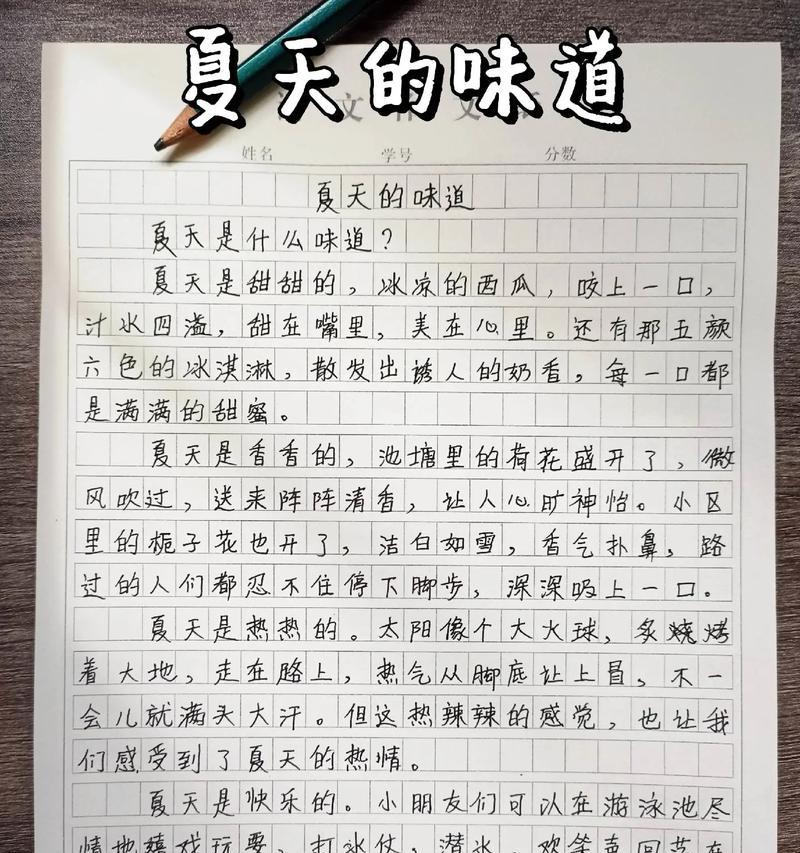 夏天的味道
姓名 学号 分数
夏天的味道
夏天是什么味道？
夏天是甜甜的，冰凉的西瓜，咬上一口，
汁水四溢，甜在嘴里，美在心里。还有那五颜
六色的冰淇淋，散发出诱人的奶香，每一口都
是满满的甜蜜。
夏天是香香的，池塘里的荷花盛开了，微
风吹过，送来阵阵清香，让人心旷神怡。小区
里的栀子花也开了，洁白如雪，香气扑鼻，路
过的人们都忍不住停下脚步，深深吸上一口。
夏天是热热的。太阳像个大火球，炙烧烤
着大地，走在路上，热气从脚底让上冒，不一
会儿就满头大汗。但这热辣辣的感觉，也让我
们感受到了夏天的热情。
夏天是快乐的。小朋友们可以在游泳池尽
情地嬉戏玩耍，打水仗，潜水，欢笑声回荡在